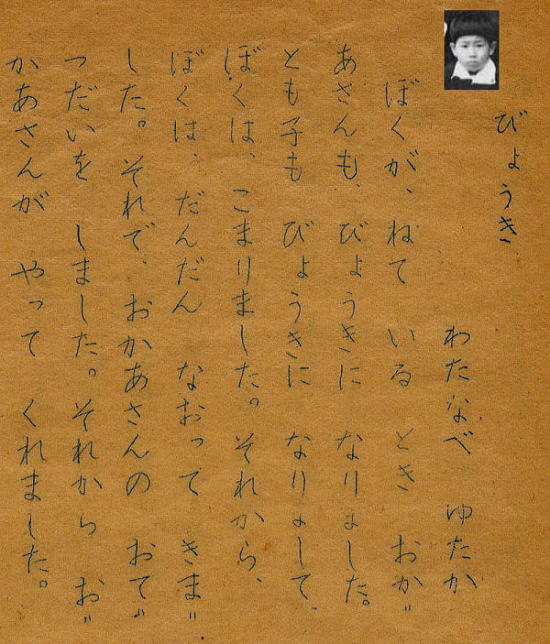 びょうき
わたなべ ゆたか
ぼくが、ねて いる とき おか〃
あさんも、びょうきに なりました。
とも子も びょうきに なりまして、
ぼくは、こまりました。それから、
ぼくは、だんだん なおって きま〃
した。それで、おかあさんの おて〃
つだいを しました。それから お〃
かあさんが やって くれました。